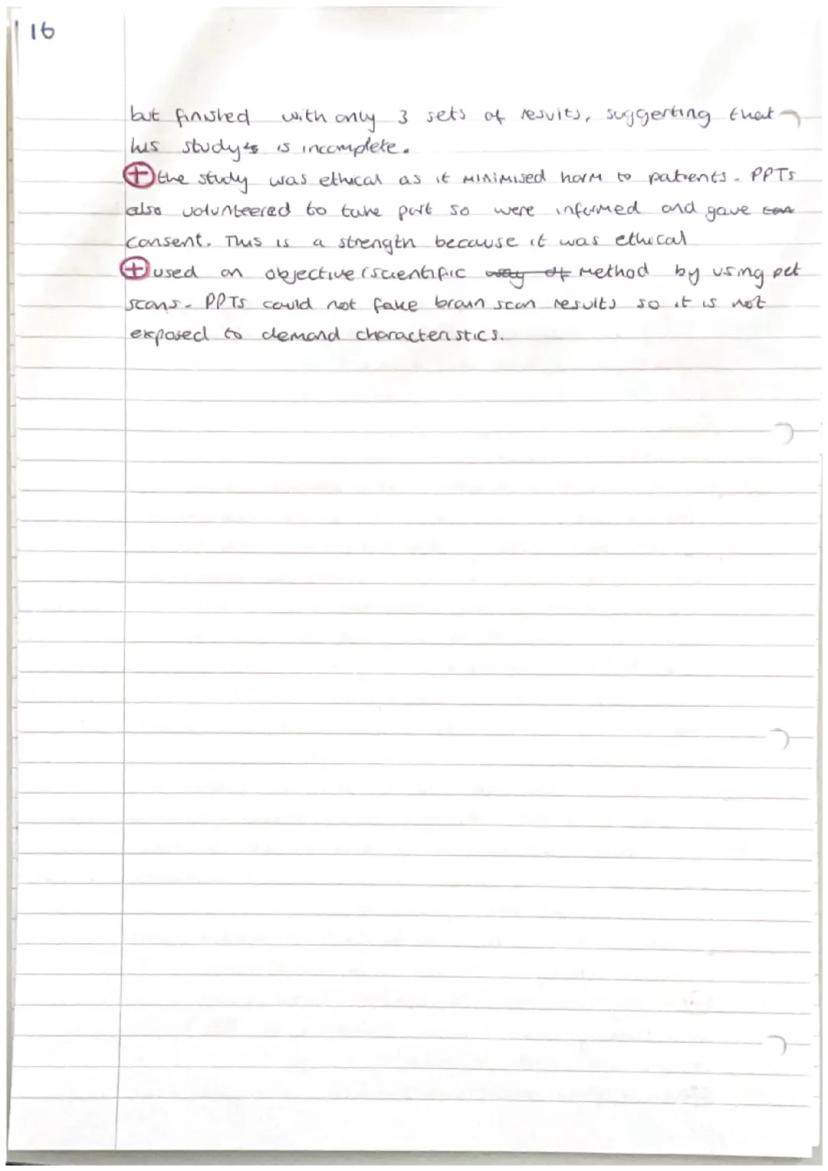 16
but finished with only 3 sets of results, suggesting that
his study is incomplete.
+ the study was ethical as it minimised harm to patients. PPTs
also volunteered to take part so were informed and gave con
consent. This is a strength because it was ethical
+ used an objective/scientific way of method by using pet
scans. PPTs could not fake brain scan results so it is not
exposed to demand characteristics.